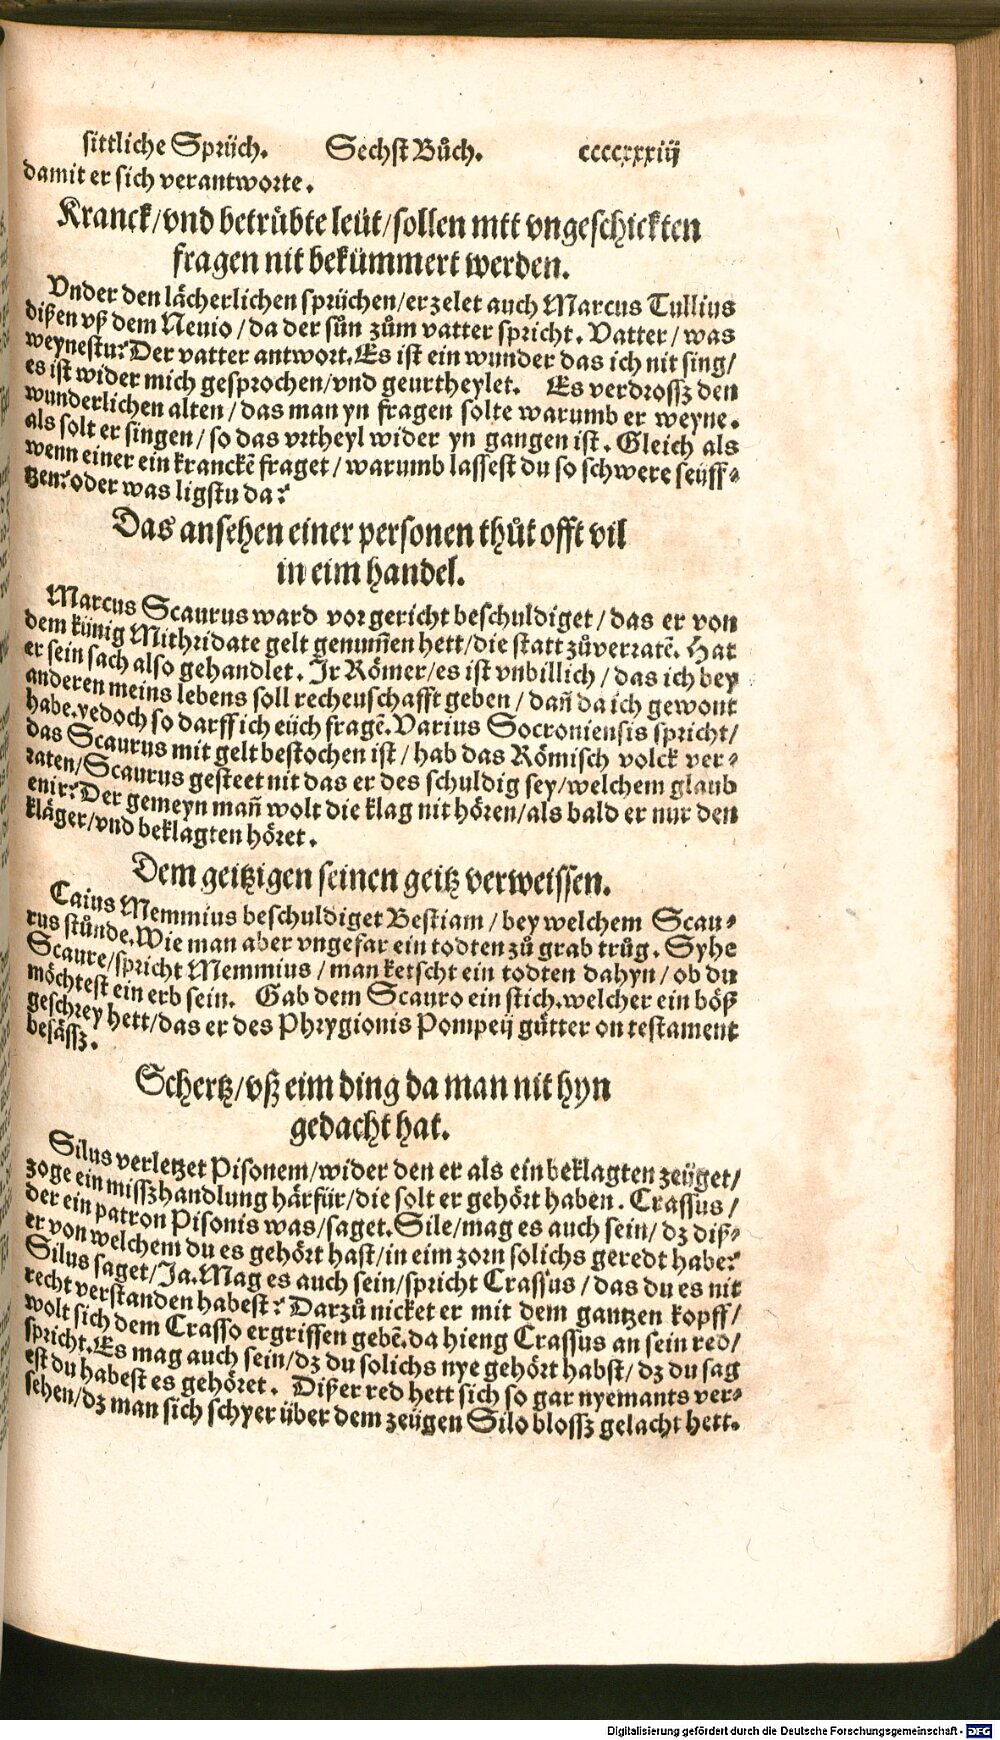 sittliche Sprüch. Sechst Bůch. ccccxxxiij
damit er sich verantworte.
Kranck/vnd betrůbte leüt/sollen mtt vngeschickten
fragen nit bekümmert werden.
Vnder den lächerlichen sprüchen/erzelet auch Marcus Tullius
dißen vß dem Neuio/da der sůn zům vatter spricht. Vatter/was
weynestu? Der vatter antwort. Es ist ein wunder das ich nit sing/
es ist wider mich gesprochen/vnd geurtheylet. Es verdrossz den
wunderlichen alten/das man yn fragen solte warumb er weyne.
als solt er singen/so das vrtheyl wider yn gangen ist. Gleich als
wenn einer ein kranckē fraget/warumb lassest du so schwere seüff⸗
tzen? oder was ligstu da?
Das ansehen einer personen thůt offt vil
in eim handel.
Marcus Scaurus ward vor gericht beschuldiget/das er von
dem künig Mithridate gelt genum̄en hett/die statt zůverratē. Hat
er sein sach also gehandlet. Jr Römer/es ist vnbillich/das ich bey
anderen meins lebens soll recheuschafft geben/dañ da ich gewont
habe. yedoch so darff ich eüch fragē. Varius Socroniensis spricht/
das Scaurus mit gelt bestochen ist/hab das Römisch volck ver⸗
raten/Scaurus gesteet nit das er des schuldig sey/welchem glaub
enir? Der gemeyn mañ wolt die klag nit hören/als bald er nur den
kläger/vnd beklagten höret.
Dem geitzigen seinen geitz verweissen.
Caius Memmius beschuldiget Bestiam/bey welchem Scau⸗
rus stůnde. Wie man aber vngefar ein todten zů grab trůg. Syhe
Scaure/spricht Memmius/man ketscht ein todten dahyn/ob du
möchtest ein erb sein. Gab dem Scauro ein stich. welcher ein böß
geschrey hett/das er des Phrygionis Pompeij gůtter on testament
besässz.
Schertz/vß eim ding da man nit hyn
gedacht hat.
Silus verletzet Pisonem/wider den er als ein beklagten zeüget/
zoge ein misszhandlung härfür/die solt er gehört haben. Crassus/
der ein patron Pisonis was/saget. Sile/mag es auch sein/dz diß⸗
er von welchem du es gehört hast/in eim zorn solichs geredt habe?
Silus saget/Ja. Mag es auch sein/spricht Crassus/das du es nit
recht verstanden habest? Darzů nicket er mit dem gantzen kopff/
wolt sich dem Crasso ergriffen gebē. da hieng Crassus an sein red/
spricht. Es mag auch sein/dz du solichs nye gehört habst/dz du sag
est du habest es gehöret. Dißer red hett sich so gar nyemants ver⸗
sehen/dz man sich schyer über dem zeügen Silo blossz gelacht hett.
Digitalisierung gefördert durch die Deutsche Forschungsgemeinschaft - DFG